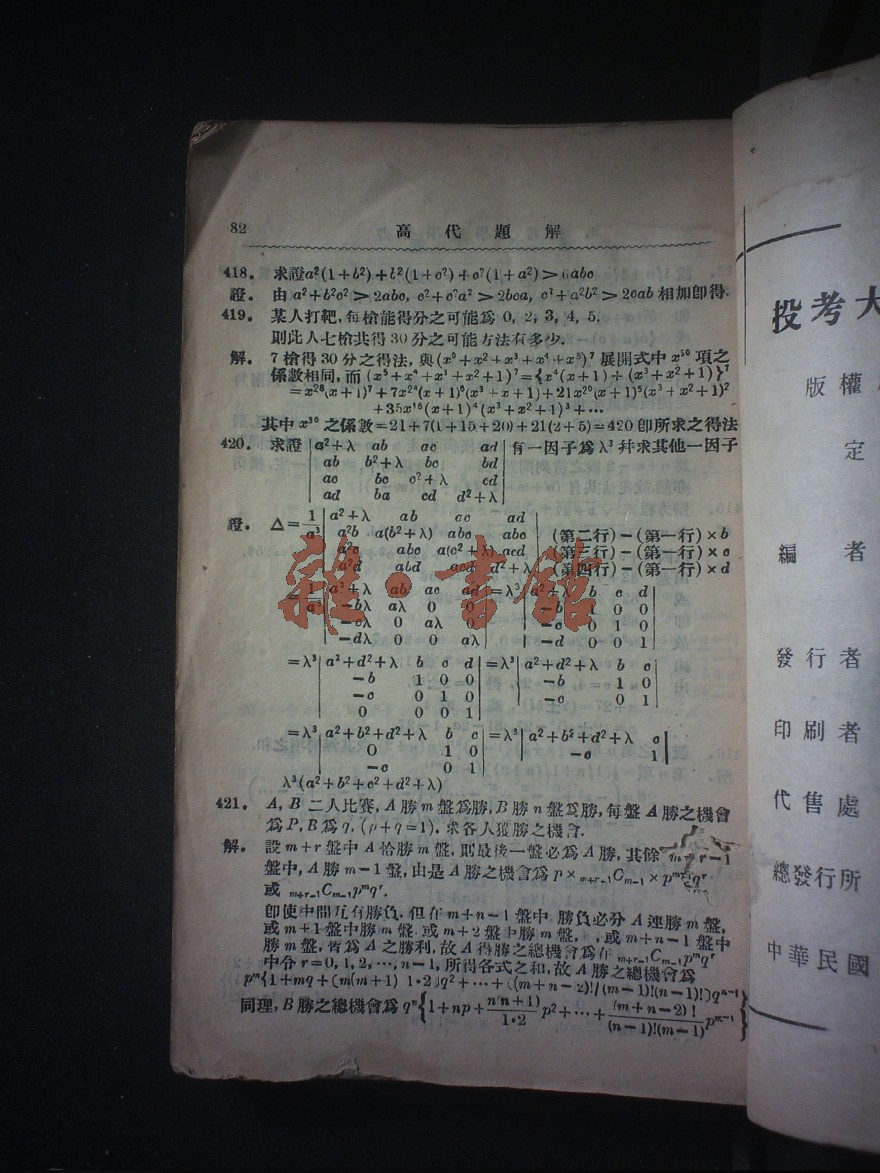 82 高代題解
418. 求證a²(1+b²)+b²(1+c²)+c²(1+a²)>6abc
證. 由a²+b²c²>2abc, c²+c²a²>2bca, c²+a²b²>2cab相加卽得.
419. 某人打靶,每槍能得分之可能爲 0, 2, 3, 4, 5.
則此人七槍共得30分之可能方法有多少.
解. 7槍得30分之得法,與(x⁰+x²+x³+x⁴+x⁵)⁷展開式中x³⁰項之
係數相同,而(x⁵+x⁴+x³+x²+1)⁷={x⁴(x+1)+(x³+x²+1)}⁷
=x²⁸(x+1)⁷+7x²⁴(x+1)⁶(x³+x+1)+21x²⁰(x+1)⁵(x³+x²+1)²
+35x¹⁶(x+1)⁴(x³+x²+1)³+…
其中x³⁰之係數=21+7(1+15+20)+21(2+5)=420卽所求之得法
420. 求證 |a²+λ ab ac ad| 有一因子爲λ³幷求其他一因子
|ab b²+λ bc bd|
|ac bc c²+λ cd|
|ad ba cd d²+λ|
證. △=1/a³ |a²+λ ab ac ad|
|a²b a(b²+λ) abc abc| (第二行)-(第一行)×b
|a²c abc a(c²+λ) acd| (第三行)-(第一行)×c
|a²d abd acd d²+λ| (第四行)-(第一行)×d
=1/a³ |a²+λ ab ac ad| =λ³ |a²+λ b c d|
|-bλ aλ 0 0| |-b 1 0 0|
|-cλ 0 aλ 0| |-c 0 1 0|
|-dλ 0 0 aλ| |-d 0 0 1|
=λ³ |a²+d²+λ b c d| =λ³ |a²+d²+λ b c|
|-b 1 0 0| |-b 1 0|
|-c 0 1 0| |-c 0 1|
|0 0 0 1|
=λ³ |a²+b²+d²+λ b c| =λ³ |a²+b²+d²+λ c|
|0 1 0| |-c 1|
|-c 0 1|
λ³(a²+b²+c²+d²+λ)
421. A, B二人比賽, A勝m盤爲勝, B勝n盤爲勝,每盤A勝之機會
爲P, B爲q. (p+q=1). 求各人獲勝之機會.
解. 設m+r盤中A恰勝m盤,則最後一盤必爲A勝,其餘m+r-1
盤中, A勝m-1盤,由是A勝之機會爲p×ₘ₊ᵣ₋₁Cₘ₋₁×pᵐ⁻¹qʳ
或 ₘ₊ᵣ₋₁Cₘ₋₁pᵐqʳ.
卽使中間互有勝負.但在m+n-1盤中 勝負必分A連勝m盤,
或m+1盤中勝m盤 或m+2盤中勝m盤, ,或m+n-1盤中
勝m盤,皆爲A之勝利,故A得勝之總機會爲在ₘ₊ᵣ₋₁Cₘ₋₁pᵐqʳ
中令r=0, 1, 2, …, n-1,所得各式之和,故A勝之總機會爲
pᵐ{1+mq+(m(m+1) 1·2)q²+…+((m+n-2)!/(m-1)!(n-1)!)qⁿ⁻¹
同理, B勝之總機會爲qⁿ{1+np+n(n+1)/1·2 p²+…+(m+n-2)!/(n-1)!(m-1)! pᵐ⁻¹}
雜·書館
投考大
版權
定
編者
發行者
印刷者
代售處
總發行所
中華民國